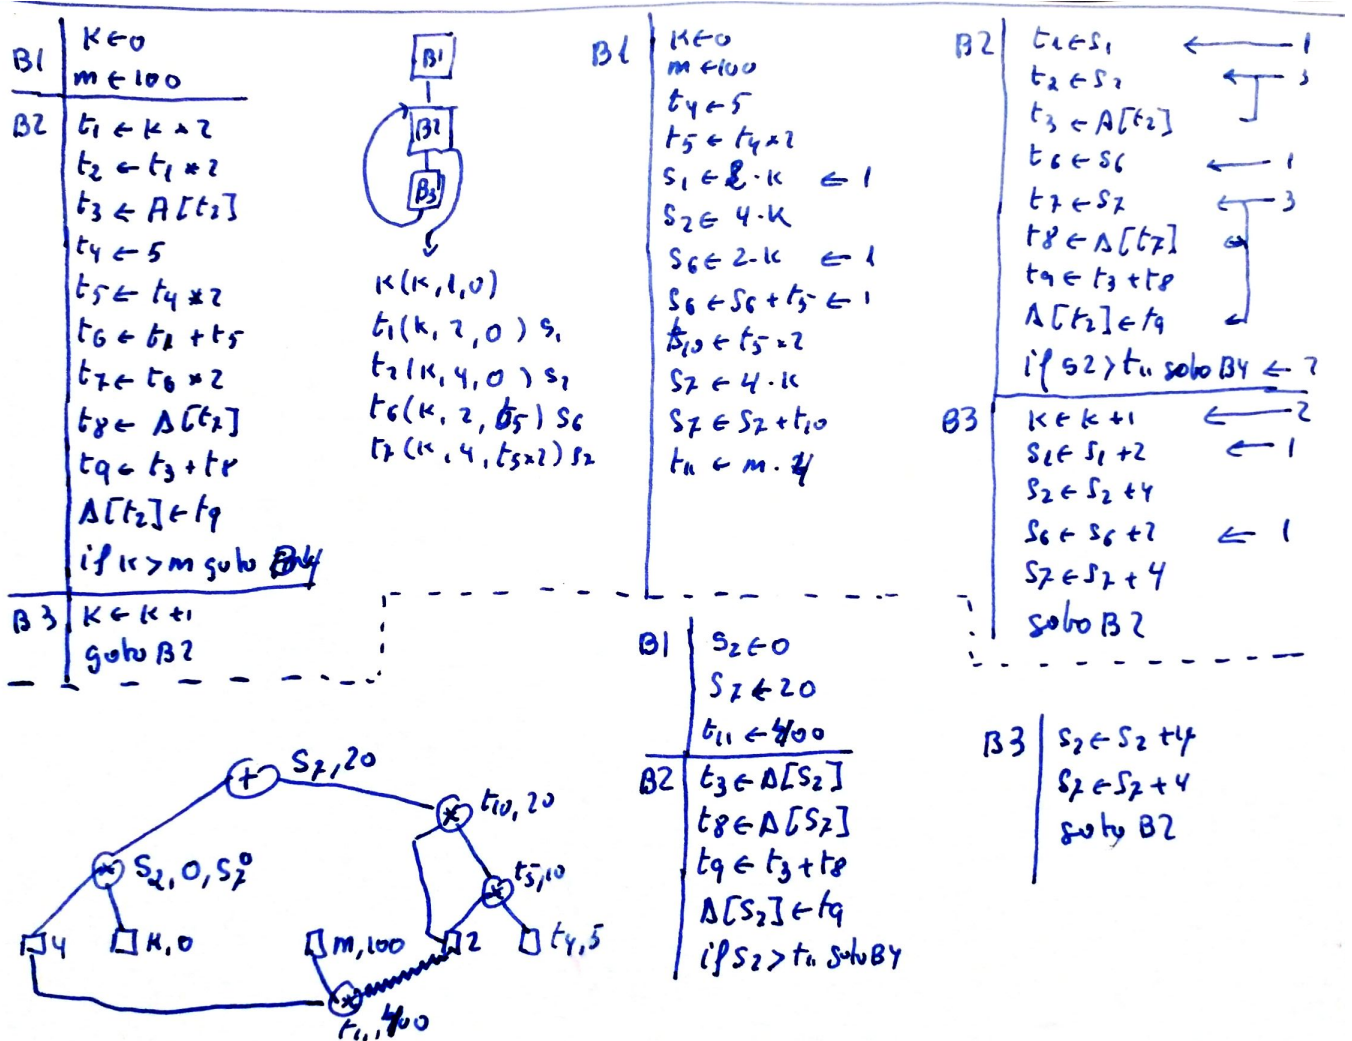 B1
K ← 0
m ← 100
B2
t1 ← K * 2
t2 ← t1 * 2
t3 ← A[t2]
t4 ← 5
t5 ← t4 * 2
t6 ← t1 + t5
t7 ← t6 * 2
t8 ← A[t7]
t9 ← t3 + t8
A[t2] ← t9
if K > m goto B4
B3
K ← K + 1
goto B2
B1
B2
B3
K(K, 1, 0)
t1(K, 2, 0) S1
t2(K, 4, 0) S2
t6(K, 2, t5) S6
t7(K, 4, t5*2) S7
B1
K ← 0
m ← 100
t4 ← 5
t5 ← t4 * 2
S1 ← 2 · K ← 1
S2 ← 4 · K
S6 ← 2 · K ← 1
S6 ← S6 + t5 ← 1
t10 ← t5 * 2
S7 ← 4 · K
S7 ← S7 + t10
t11 ← m · 4
B2
t1 ← S1 ← 1
t2 ← S2 ← 3
t3 ← A[t2]
t6 ← S6 ← 1
t7 ← S7 ← 3
t8 ← A[t7]
t9 ← t3 + t8
A[t2] ← t9
if S2 > t11 goto B4 ← 2
B3
K ← K + 1 ← 2
S1 ← S1 + 2 ← 1
S2 ← S2 + 4
S6 ← S6 + 2 ← 1
S7 ← S7 + 4
goto B2
+ S7, 20
* t10, 20
* S2, 0, S7 0
* t5, 10
4
K, 0
m, 100
2
t4, 5
* t11, 400
B1
S2 ← 0
S7 ← 20
t11 ← 400
B2
t3 ← A[S2]
t8 ← A[S7]
t9 ← t3 + t8
A[S2] ← t9
if S2 > t11 goto B4
B3
S2 ← S2 + 4
S7 ← S7 + 4
goto B2